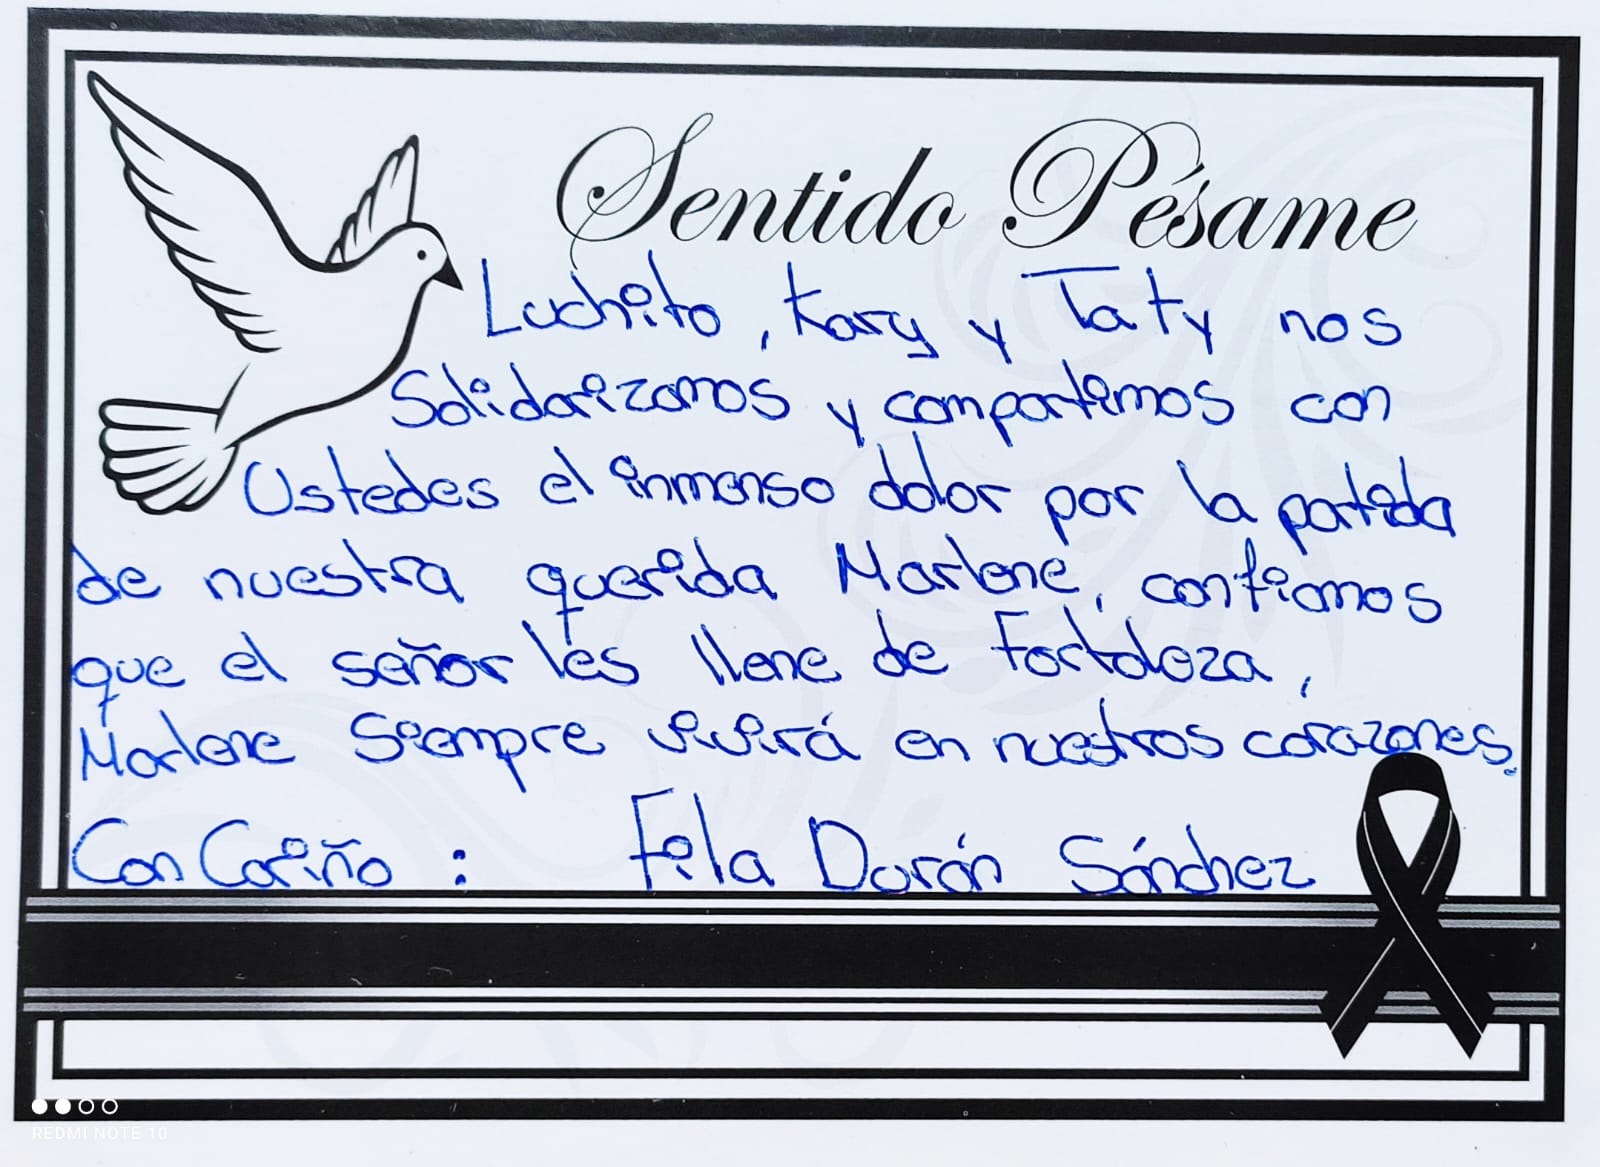 Sentido Pésame
Luchito, Kary y Taty nos
Solidarizamos y compartimos con
Ustedes el inmenso dolor por la partida
de nuestra querida Marlene, confiamos
que el señor les llene de Fortaleza,
Marlene Siempre vivirá en nuestros corazones.
Con Cariño : Fila Durán Sánchez
REDMI NOTE 10